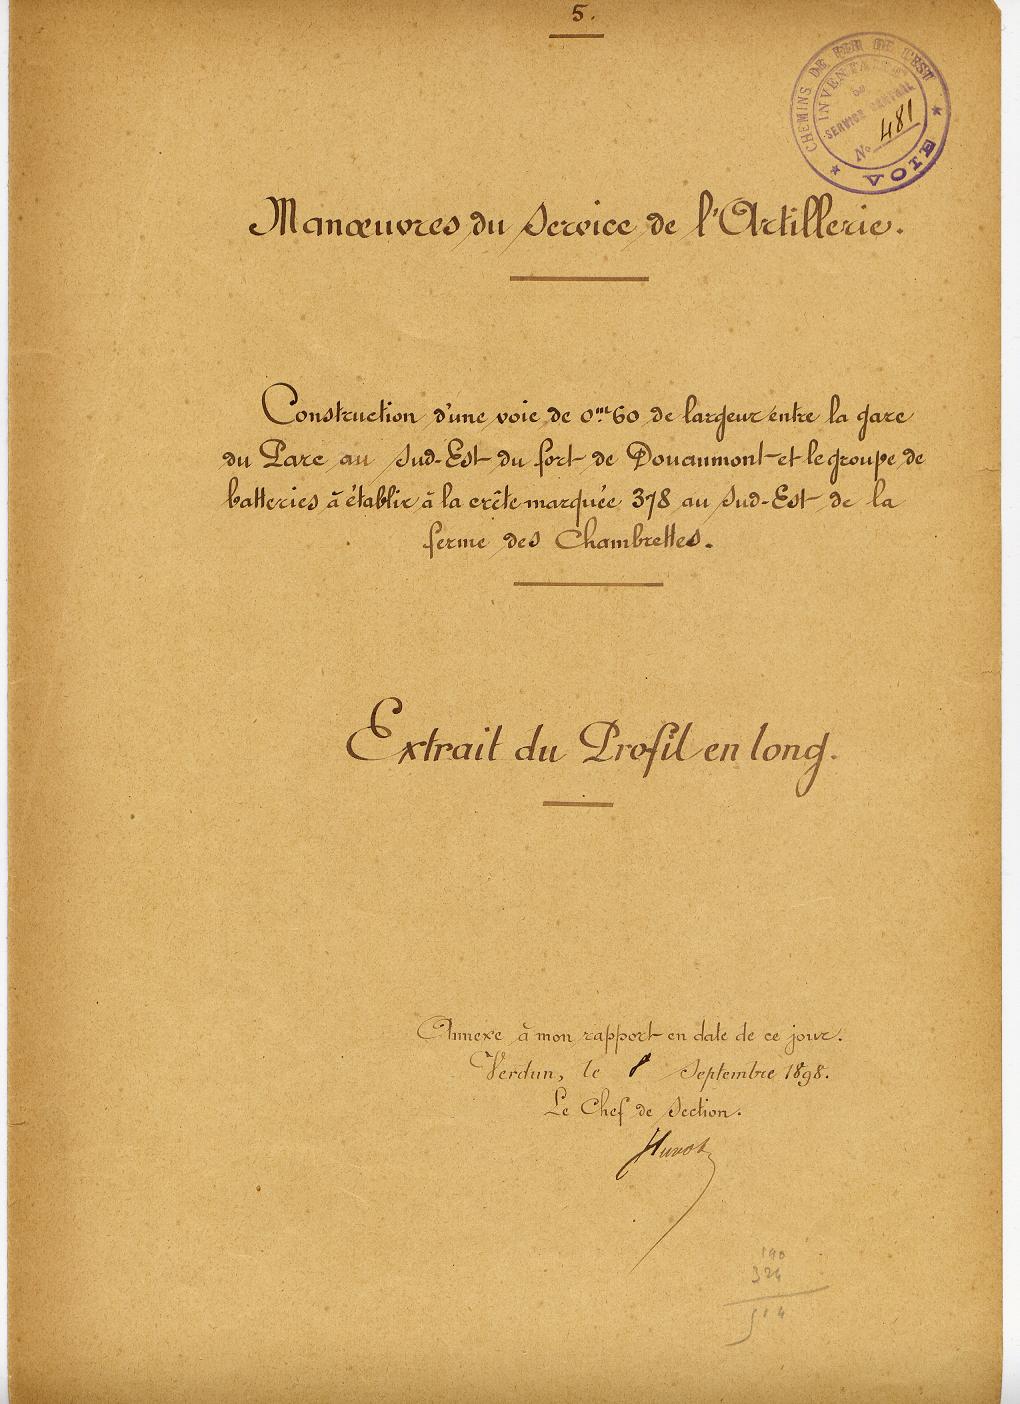 5.
CHEMINS DE FER DE L'EST
INVENTAIRE
DU
SERVICE CENTRAL
N° 481
VOIE
Manœuvres du Service de l'Artillerie.
Construction d'une voie de 0.m60 de largeur entre la gare
du Parc au Sud-Est du fort de Douaumont et le groupe de
batteries à établir à la crête marquée 378 au Sud-Est de la
ferme des Chambrettes.
Extrait du Profil en long.
Annexe à mon rapport en date de ce jour.
Verdun, le 8 Septembre 1898.
Le Chef de Section.
190
324
514